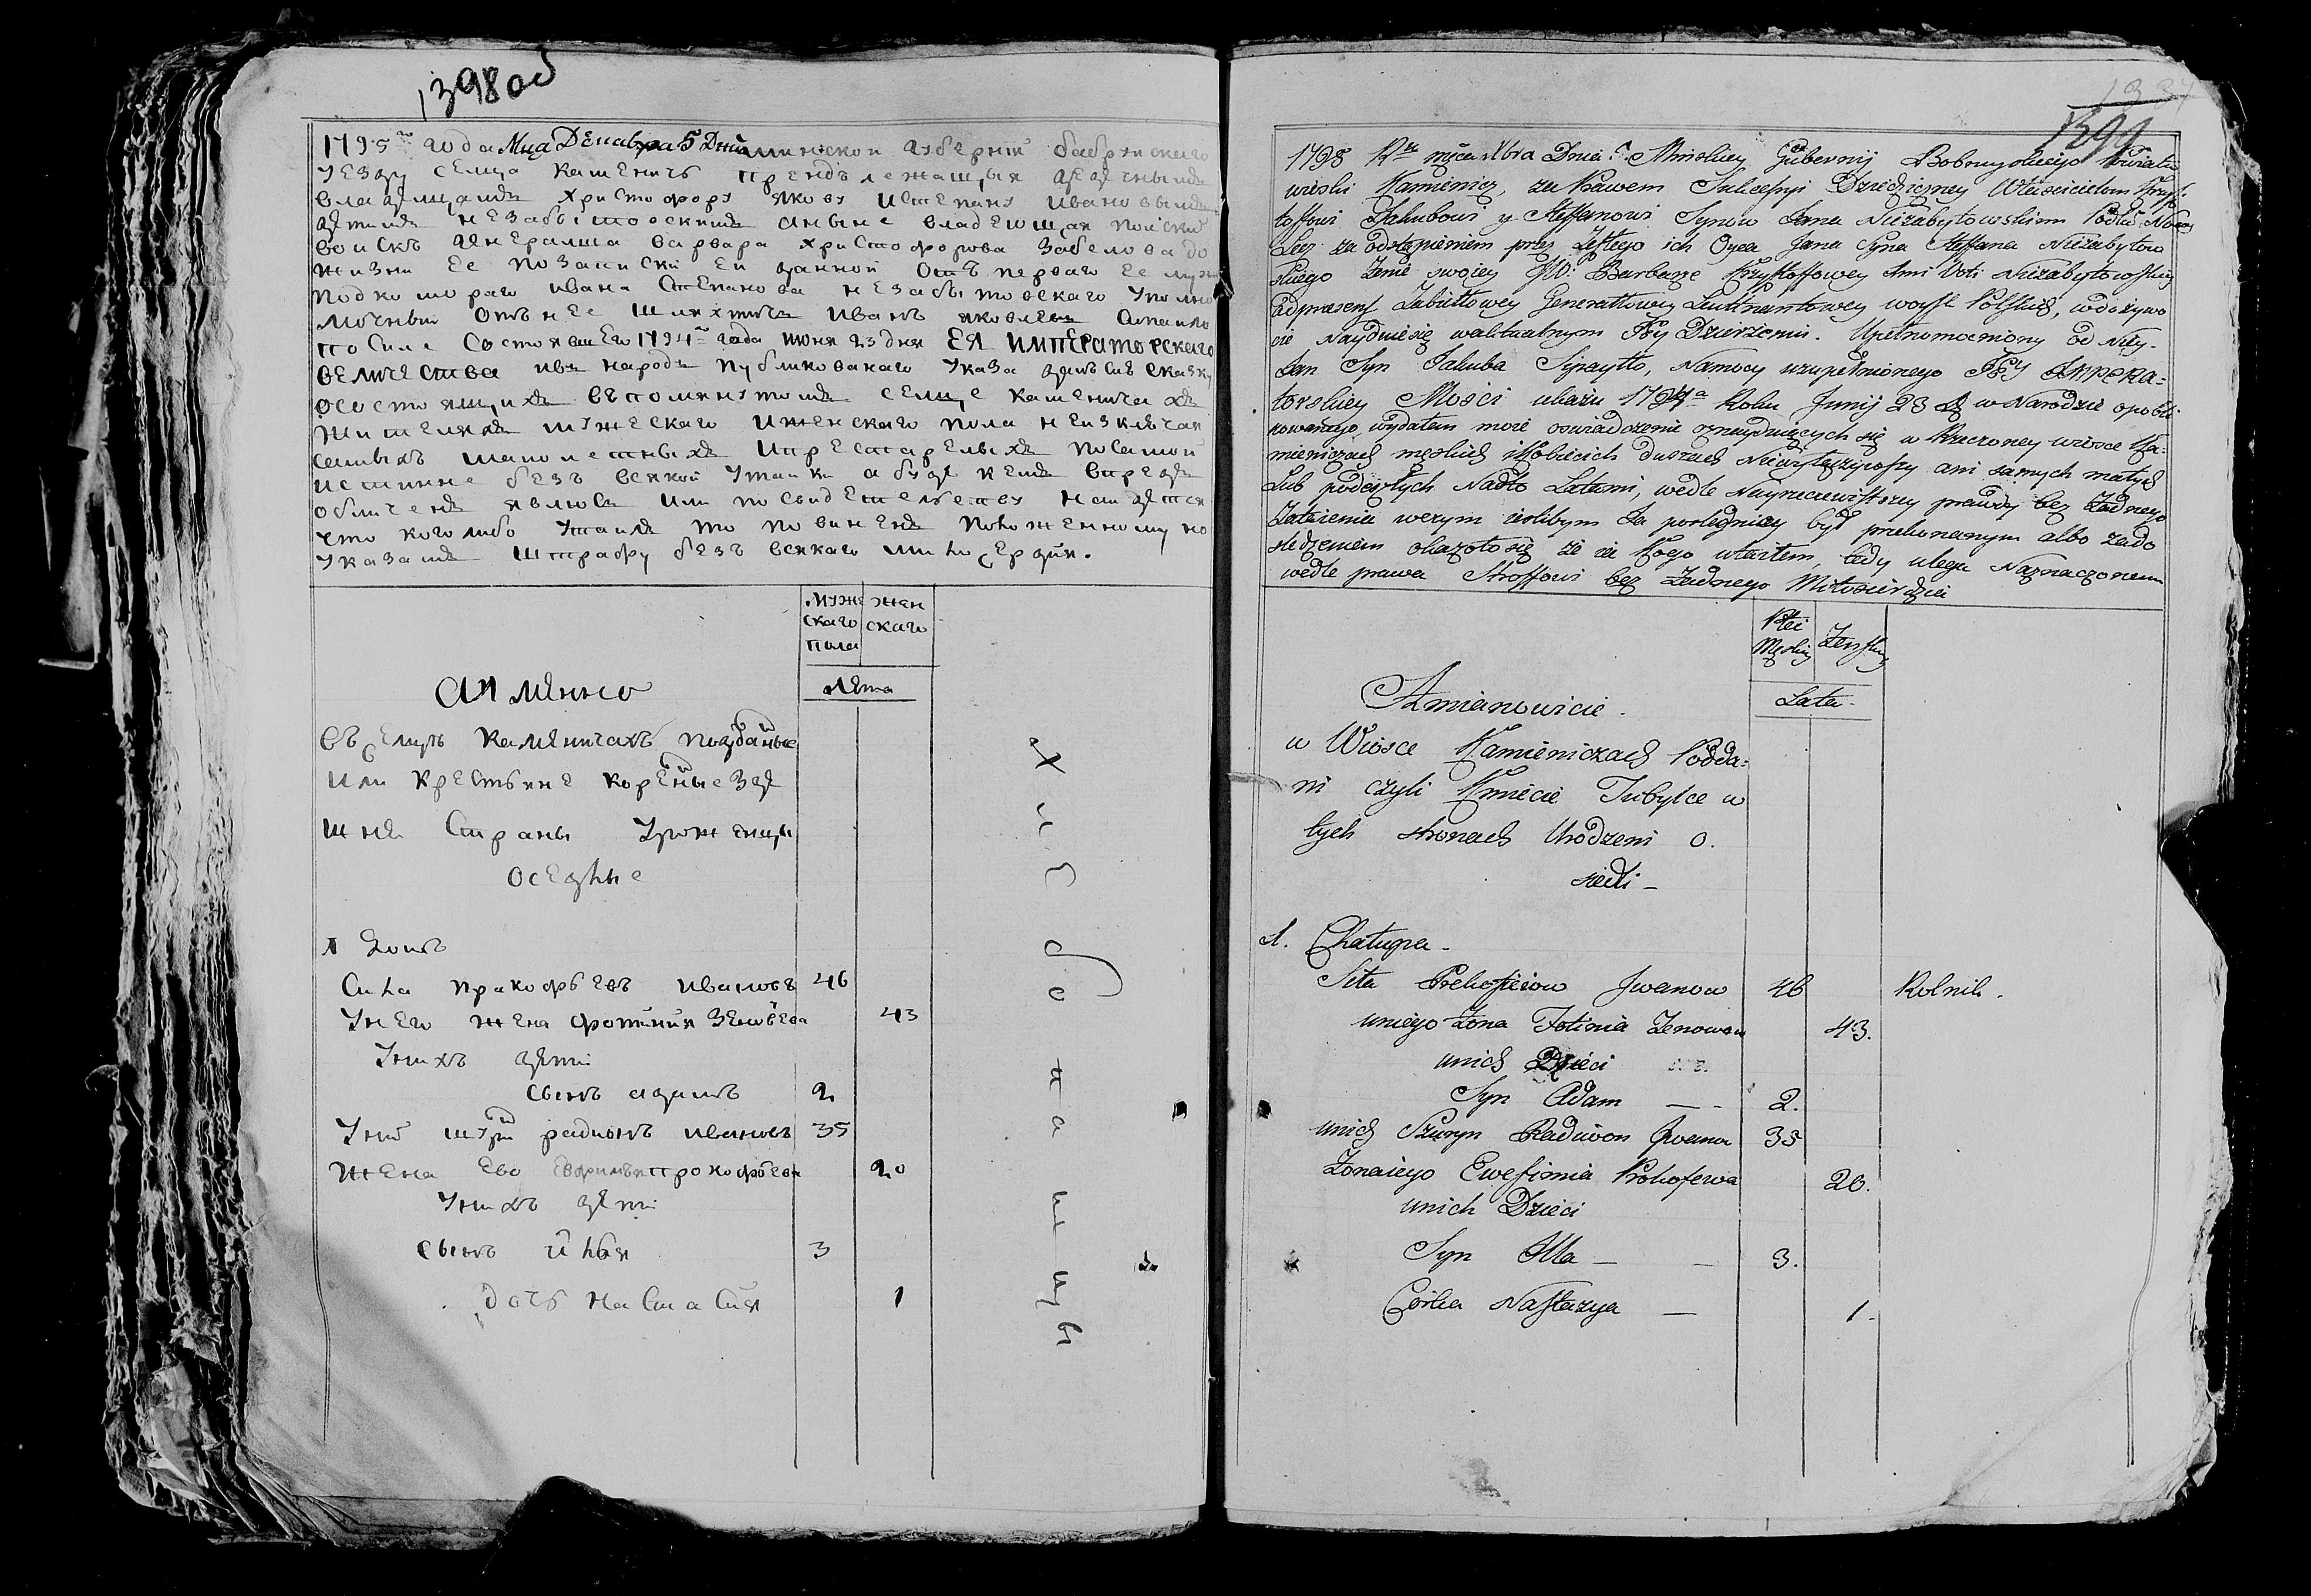 1398 об
1795го года Мца Декабра 5 Дня минской губерніи бабруискаго
уезду селца каменичъ принадлежащая дедичнымъ
владелцамъ христофору якову и степану ивановымъ
детямъ незабытовскимъ а ныне владеющая
воискъ генералша варвара христофорова забелова до
жизни ее по записки ей данной отъ перваго ее мужа
подкомораго ивана степанова незабытовскаго уполно
моченный отъ нее шляхтичъ иванъ яковлевъ
по силе состоявшего 1794го года июня 23 дня ЕЯ ИМПЕРАТОРСКАГО
величества и въ народъ публикованаго указа далъ сию сказку
о состоящихъ въ помянутомъ селце каменичахъ
жителяхъ мужескаго и женскаго пола не изключая
самыхъ малолетныхъ и престарелыхъ по самой
истинне безъ всякой утайки а буде кемъ впредъ
обличенъ явлюсь или по свидетелству найдется
что кого либо утаилъ то повиненъ положенному по
указамъ штрафу безъ всякаго милосердия.
муже
скаго
пола
жен
скаго
лета
а именно
въ селце каменичахъ подданые
или крестьяне кореные зде
шней страны уроженцы
оседлые
1 домъ
Сила пракофьевъ ивановъ 46
у него жена фотиния зеновьева 43
у нихъ дети
сынъ адамъ 2
у нихъ шуринъ радионъ ивановъ 35
жена ево евфимья прокофьева 20
у нихъ дети
сынъ илья 3
дочь настасия 1
х
л
о
п
а
ш
ц
ъ
1399
1795 Rku mca Xbra Dnia 5 Minskiey Gubernij Bobruyskiego Powiatu
wioski Kamienicz, za Prawem Sukcessyi Dziedziczney Włascicielom Krysz
toffowi Jakubowi y Steffanowi Synom Jana Niezabytowskim
Lecz za odstąpieniem przez Zeszłego ich Oyca Jana Syna Steffana Niezabytow
skiego Zonie swoiey JW: Barbarze Krysztoffowey 1mi Voti Niezabytowskiey
adpraesens Zabiełłowey Generałłowey Leutnantowey woysk Polskich, w dożywo
cie Nayduie się w aktualnym Jey Dzierżeniu. Upełnomocniony od Niey
Jan Syn Jakuba Sipayłło, Na mocy uzupełnionego Jey Impera=
torskiey Mości ukazu 1794go Roku Junij 23 D w Narodzie opubli
kowanego, wydałem moie oswiadczenie o znayduiących się w Rzeczoney wiosce Ka=
mieniczach męskich i Kobiecich duszach Niewyłączywszy ani samych małych
Lub podeszłych Nadto Latami, wedle Nayrzeczewistszey prawdy bez Zadnego
Zataienia w czym ieslibym Ja poslednicy był przekonanym albo za do
sledzeniem okazało się że ia Kogo utaiłem, tedy ulegu Naznaczonemu
wedle prawa Stroffowi bez Zadnego Miłosierdzia
Płci
Męskiey
Zenskiey
Lata
A mianowicie.
w Wiosce Kamieniczach Podda=
ni czyli Kmiecie Tubylce w
tych stronach Urodzeni o.
siedli –
1. Chałupa –
Siła Prokofieiow Jwanow 46 Rolnik.
u niego Zona Fotinia Zenowowa 43.
u nich Dzieci
Syn Adam — – 2.
u nich Szuryn Radiwon Jwanow 35
Zona iego Ewefimia Prokofewa 20.
u nich Dzieci
Syn Jlla – – 3.
Córka Nastazya – 1.